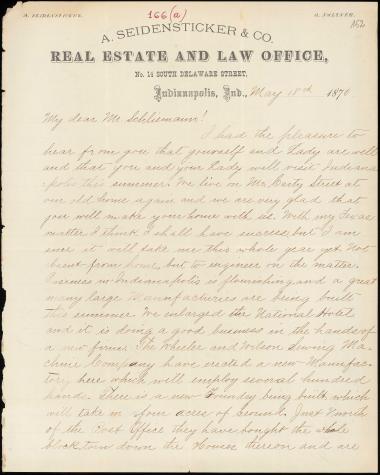 166(a)
A. SEIDENSTICKER.
A. SEIDENSTICKER & CO.
REAL ESTATE AND LAW OFFICE,
No. 14 SOUTH DELAWARE STREET,
Indianapolis, Ind., May 18th 1870
My dear Mr Schliemann!
I had the pleasure to
hear from you that yourself and Lady are well
and that you and your Lady will visit Indiana
polis this summer. We live on McCarty Street at
our old home again and we are very glad that
you will make your home with us. With my Texas
matter I think I shall have success, but I am
sure it will take me this whole year yet Not
absent from home, but to engineer on the matter.
Business in Indianapolis is flourishing and a great
many large Manufacturies are being built
this summer. We enlarged the National Hotel
and it is doing a good business in the hands of
a new firm. The Wheeler and Wilson Sewing Ma-
chine Company have created a new Manufac-
tory here which will employ several hundred
hands. There is a new Foundry being built, which
will take in four acres of Ground. Just North
of the Post Office they have bought the whole
block, torn down the Houses thereon and are